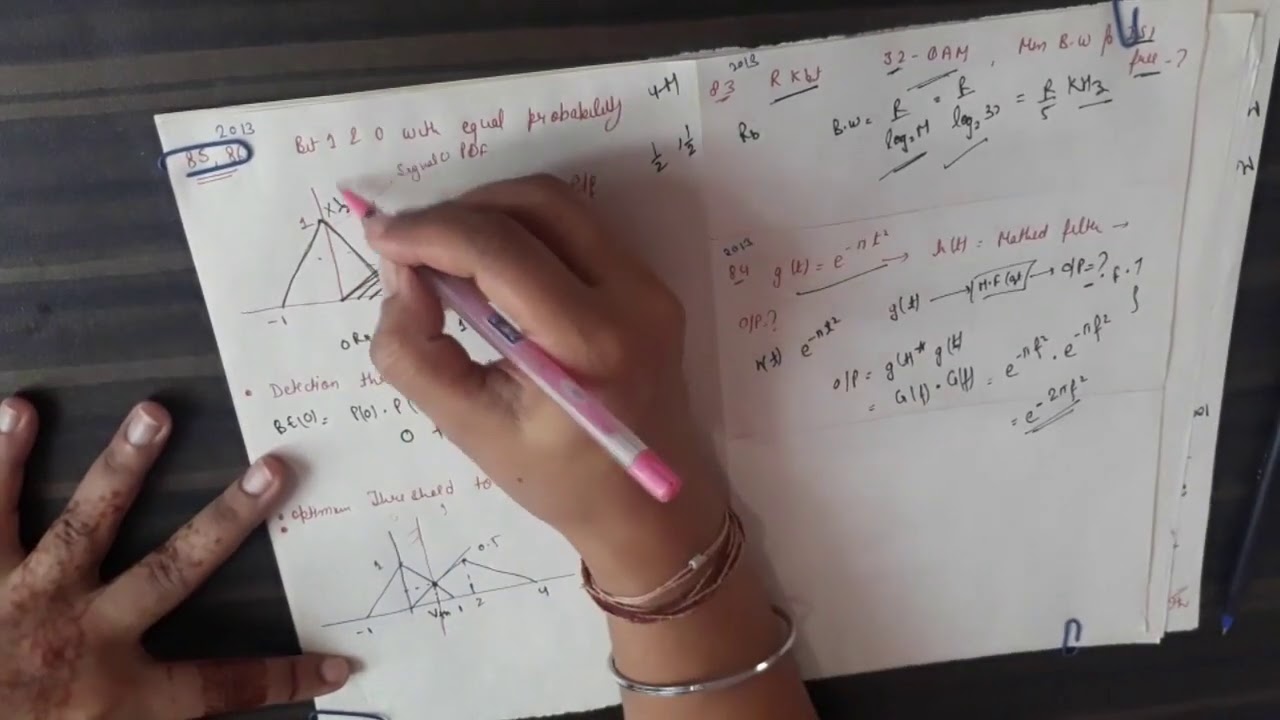 2013
85, 86
Bit 1 & 0 with equal probability
Signal PDF
1
-1
• Detection
BE(0) = P(0) . P (
0 +
• Optimum Threshold to
1
0.5
-1
1
2
4
1/2, 1/2
2013
83 R Kbt 32-QAM, Min B.W for ISI
free - ?
Rb
B.W = R/log₂M = R/log₂32 = R/5 KHz
2013
84 g(t) = e^-πt² → h(t) = Mathed filter →
O/P = ?
g(t) → M.F → O/P = ?
h(t) e^-πt²
O/P = g(t) * g(t)
= G(f) . G(f) = e^-πf² . e^-πf²
= e^-2πf²